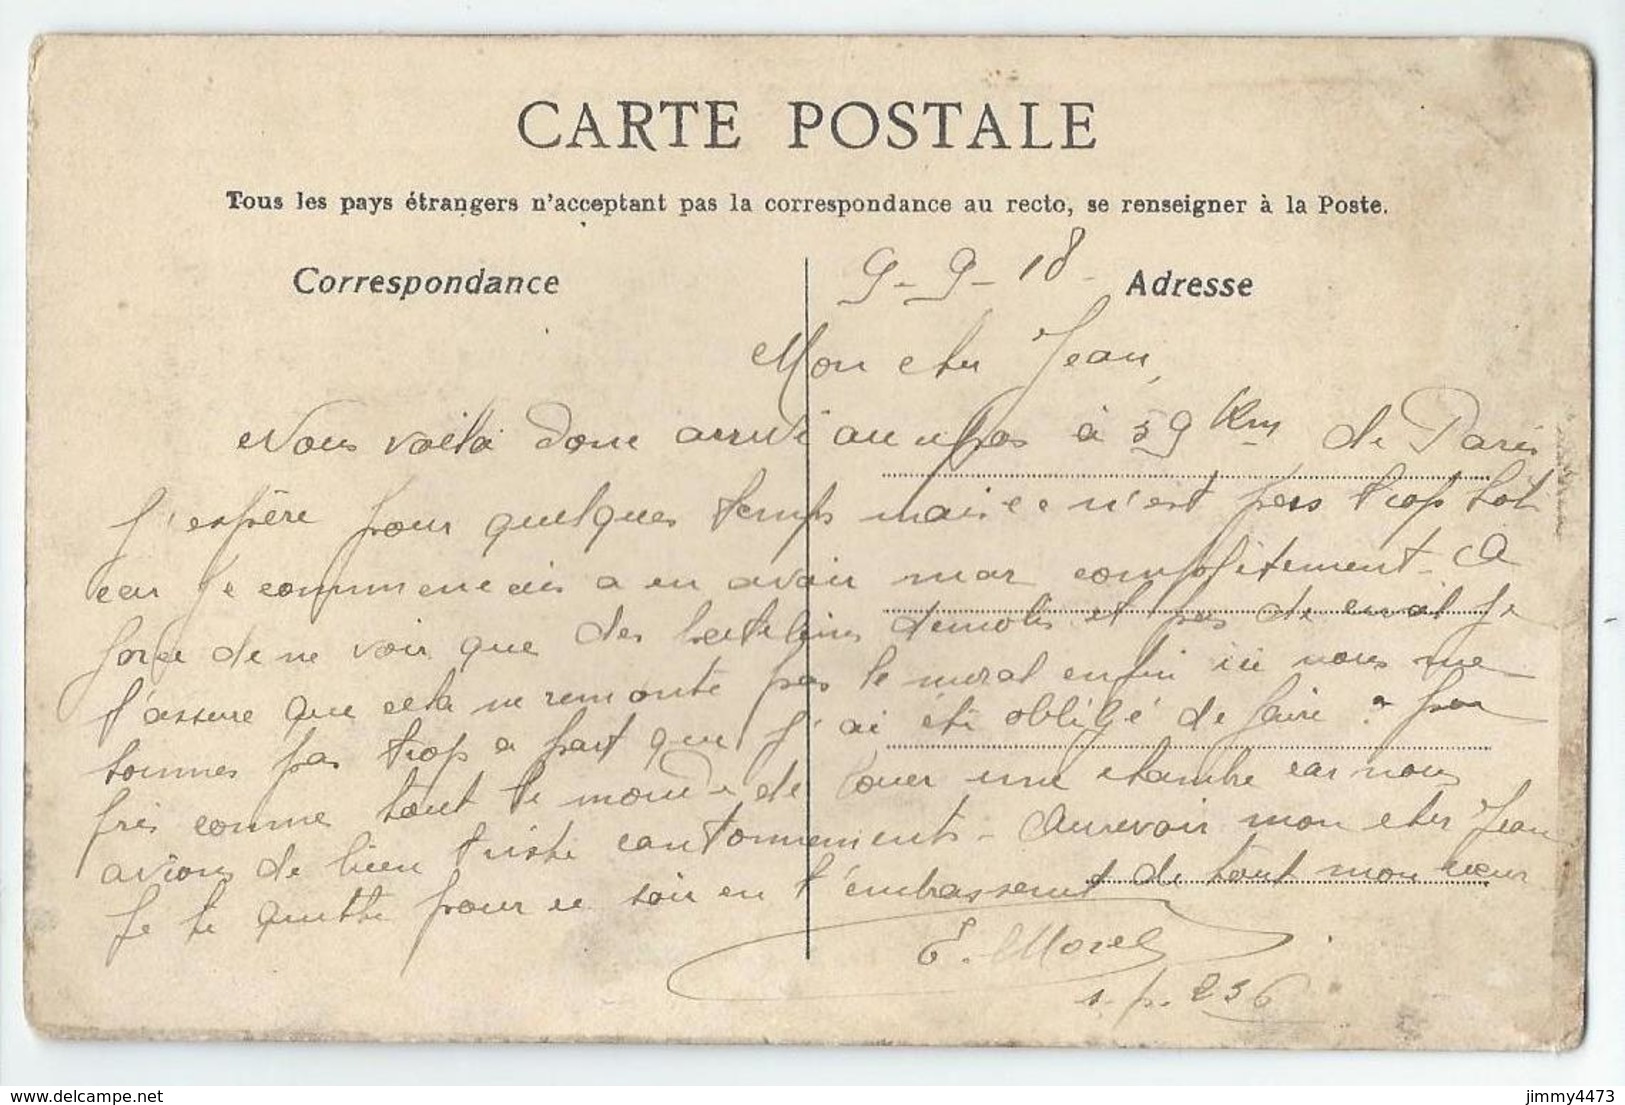 CARTE POSTALE
Tous les pays étrangers n'acceptant pas la correspondance au recto, se renseigner à la Poste.
Correspondance
9-9-18-
Adresse
Mon cher Jean,
Nous voilà donc arrivé au repos à 59 Km de Paris
j'espère pour quelques temps mais ce n'est pas trop tôt
car je commencais a en avoir mar complètement. A
force de ne voir que des patelins démolis et pas de civil je
t'assure que cela ne remonte pas le moral enfin ici nous ne
sommes pas trop a part que j'ai été obligé de faire a peu
près comme tout le monde de louer une chambre car nous
avions de bien triste cantonnements - Aurevoir mon cher Jean
Je te quitte pour ce soir en t'embrassant de tout mon cœur
E. Morel
s. p. 236
delcampe.net
jimmy4473